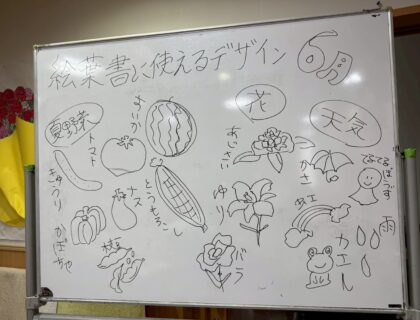 絵葉書に使えるデザイン 6月
夏野菜
トマト
すいか
きゅうり
ナス
とうもろこし
かぼちゃ
枝豆
花
あじさい
ゆり
バラ
天気
かさ
てるてるぼうず
雨
カエル